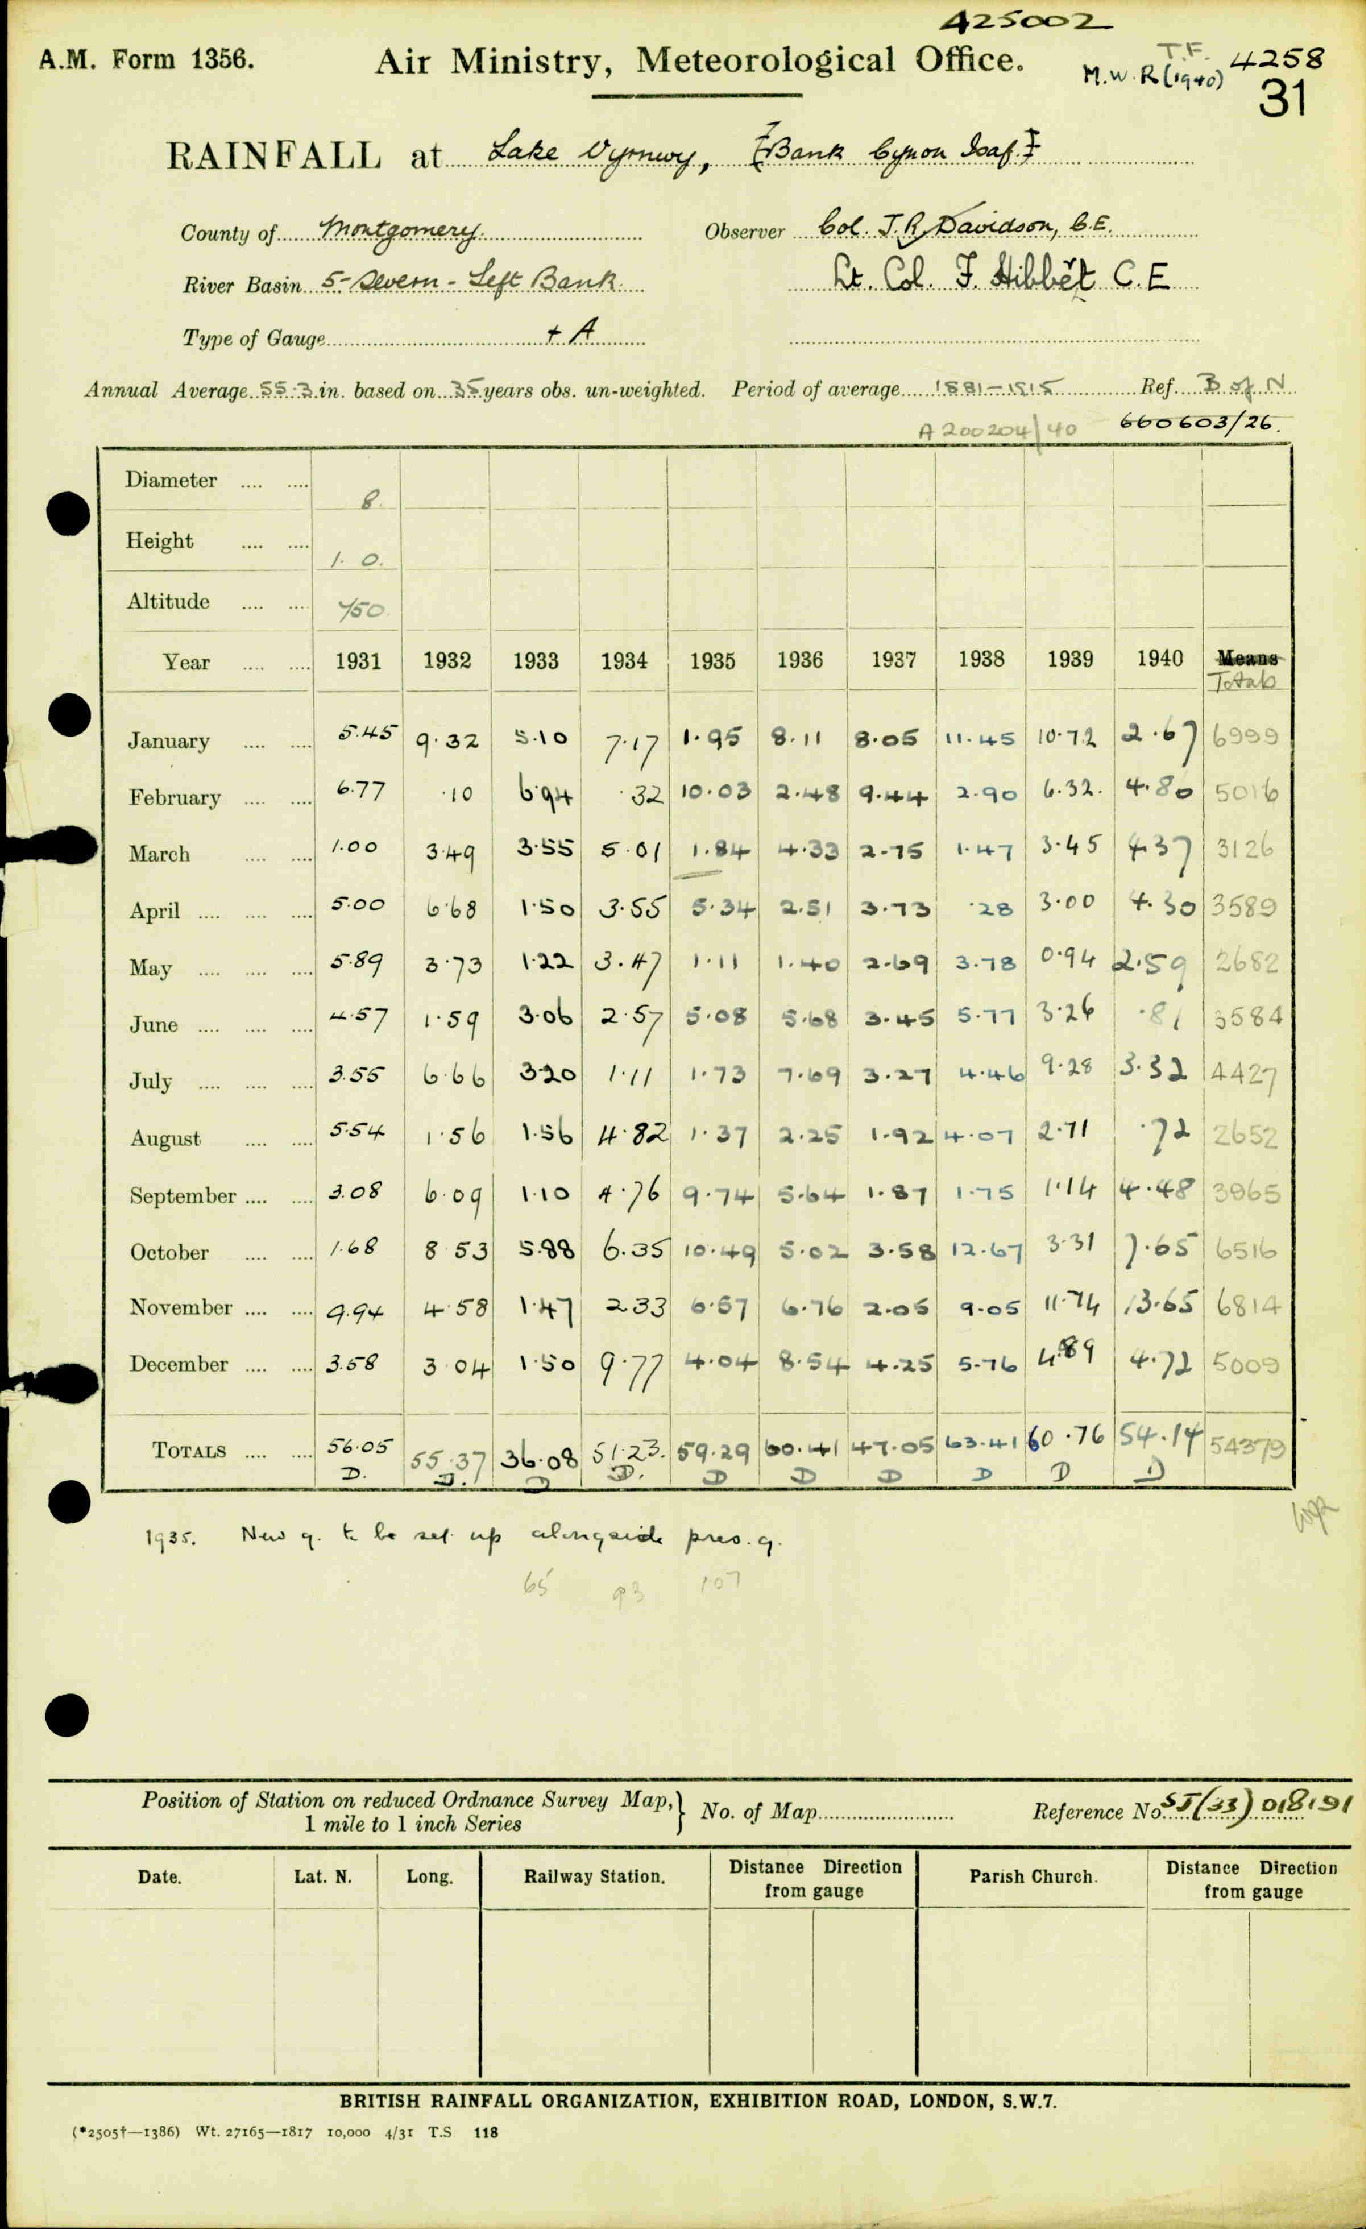 425002
A.M. Form 1356. Air Ministry, Meteorological Office. T.F. 4258
M.W.R (1940) 31
RAINFALL at Lake Vyrnwy, [Bank Cynon Isaf.]
County of Montgomery. Observer Col. J.R. Davidson, C.E.
River Basin 5-Severn - Left Bank. Lt. Col. F. Hibbert C.E
Type of Gauge + A
Annual Average 55.3 in. based on 35 years obs. un-weighted. Period of average 1881-1915 Ref. B of N
A 200204/40 660603/26.
Diameter .... .... 8.
Height .... .... 1. 0.
Altitude .... .... 750
Year .... .... 1931 1932 1933 1934 1935 1936 1937 1938 1939 1940 Means
Totals
January .... .... 5.45 9.32 5.10 7.17 1.95 8.11 8.05 11.45 10.72 2.67 6999
February .... .... 6.77 .10 6.94 .32 10.03 2.48 9.44 2.90 6.32. 4.80 5016
March .... .... 1.00 3.49 3.55 5.01 1.84 4.33 2.75 1.47 3.45 4.37 3126
April .... .... .... 5.00 6.68 1.50 3.55 5.34 2.51 3.73 .28 3.00 4.30 3589
May .... .... .... 5.89 3.73 1.22 3.47 1.11 1.40 2.69 3.78 0.94 2.59 2682
June .... .... .... 4.57 1.59 3.06 2.57 5.08 5.68 3.45 5.77 3.26 .81 3584
July .... .... .... 3.55 6.66 3.20 1.11 1.73 7.69 3.27 4.46 9.28 3.32 4427
August .... .... 5.54 1.56 1.56 4.82 1.37 2.25 1.92 4.07 2.71 .72 2652
September .... .... 3.08 6.09 1.10 4.76 9.74 5.64 1.87 1.75 1.14 4.48 3965
October .... .... 1.68 8 53 5.88 6.35 10.49 5.02 3.58 12.67 3.31 7.65 6516
November .... .... 9.94 4.58 1.47 2.33 6.57 6.76 2.05 9.05 11.74 13.65 6814
December .... .... 3.58 3 04 1.50 9.77 4.04 8.54 4.25 5.76 4.89 4.72 5009
TOTALS .... .... 56.05 55.37 36.08 51.23. 59.29 60.41 47.05 63.41 60.76 54.14 54379
D. D. D D. D D D D D D
1935. New g. to be set up alongside pres. g.
65 93 107
Position of Station on reduced Ordnance Survey Map, 1 mile to 1 inch Series } No. of Map Reference No. SJ(33) 018191
Date. Lat. N. Long. Railway Station. Distance Direction from gauge Parish Church. Distance Direction from gauge
BRITISH RAINFALL ORGANIZATION, EXHIBITION ROAD, LONDON, S.W.7.
(*2505†—1386) Wt. 27165—1817 10,000 4/31 T.S 118